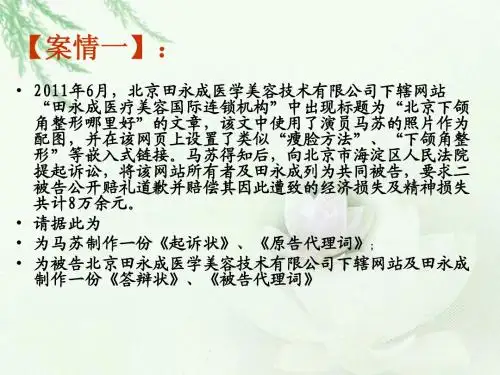 【案情一】：
• 2011年6月，北京田永成医学美容技术有限公司下辖网站
“田永成医疗美容国际连锁机构”中出现标题为“北京下颌
角整形哪里好”的文章，该文中使用了演员马苏的照片作为
配图，并在该网页上设置了类似“瘦脸方法”、“下颌角整
形”等嵌入式链接。马苏得知后，向北京市海淀区人民法院
提起诉讼，将该网站所有者及田永成列为共同被告，要求二
被告公开赔礼道歉并赔偿其因此遭致的经济损失及精神损失
共计8万余元。
• 请据此为
• 为马苏制作一份《起诉状》、《原告代理词》；
• 为被告北京田永成医学美容技术有限公司下辖网站及田永成
制作一份《答辩状》、《被告代理词》